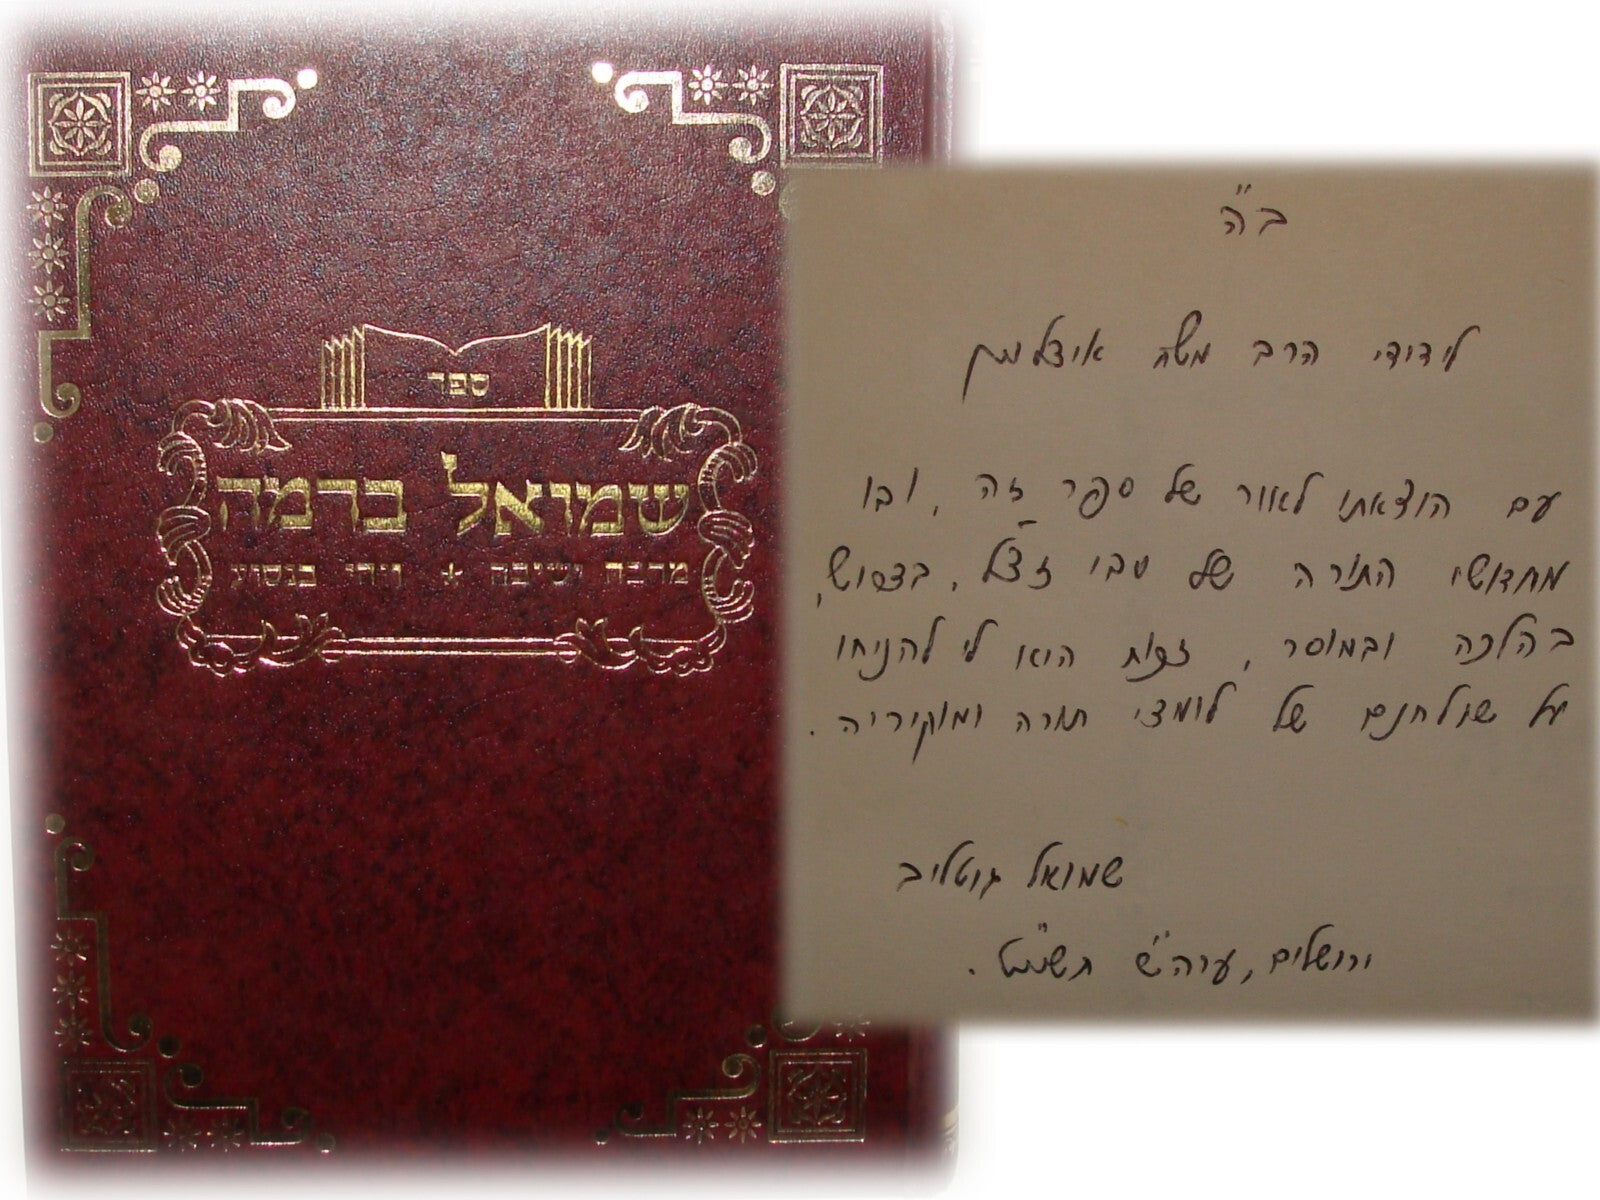 ספר
שמואל ברמה
מרבה ישיבה + ויהי בנסיע
ב"ה
לידידי הרב משה איצלסון
עם הוצאתו לאור של ספר זה, ובו
מחדושי התורה של סבי זצ"ל, בדרוש,
בהלכה ובמוסר, זכות הוא לי להניחו
על שולחנם של לומדי תורה ומוקיריה.
שמואל גוטליב
ירושלים, ערה"ש תשנ"ט.